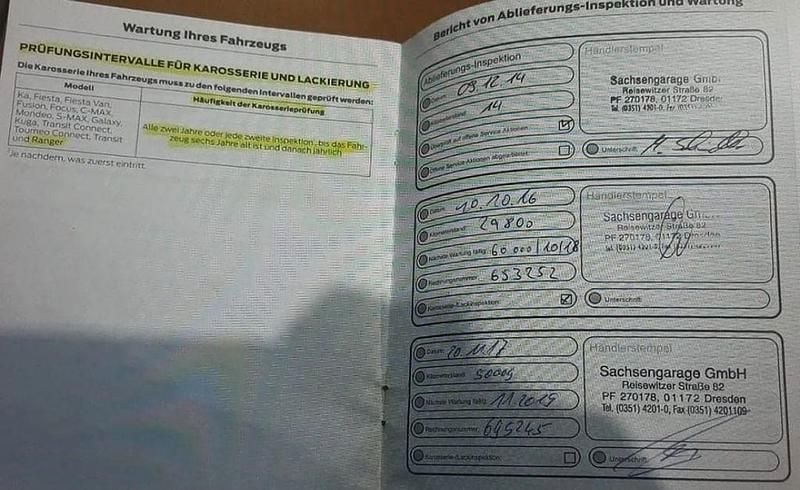 Wartung Ihres Fahrzeugs
PRÜFUNGSINTERVALLE FÜR KAROSSERIE UND LACKIERUNG
Die Karosserie Ihres Fahrzeugs muss zu den folgenden Intervallen geprüft werden:
Modell
Häufigkeit der Karosserieprüfung
Ka, Fiesta, Fiesta Van,
Fusion, Focus, C-MAX,
Mondeo, S-MAX, Galaxy,
Kuga, Transit Connect,
Tourneo Connect, Transit
und Ranger
Alle zwei Jahre oder jede zweite Inspektion, bis das Fahr-
zeug sechs Jahre alt ist und danach jährlich
Je nachdem, was zuerst eintritt.
Bericht von Ablieferungs-Inspektion und Wartung
Ablieferungs-Inspektion
09.12.14
14
Überprüft auf offene Service-Aktionen
Offene Service-Aktionen abgearbeitet:
Händlerstempel
Sachsengarage GmbH
Reisewitzer Straße 82
PF 270178, 01172 Dresden
Tel. (0351) 4201-0, Fax
Unterschrift:
Datum: 10.10.16
Kilometerstand: 29800
Nächste Wartung fällig: 60 000/10/18
Rechnungsnummer: 653252
Karosserie-/Lackinspektion:
Händlerstempel
Sachsengarage Gm
Reisewitzer Straße 82
PF 270178, 01172 Dresden
Tel. (0351) 4201-0,
Unterschrift:
Datum: 20.11.17
Kilometerstand: 50009
Nächste Wartung fällig: 11.2019
Rechnungsnummer: 695245
Karosserie-/Lackinspektion:
Händlerstempel
Sachsengarage GmbH
Reisewitzer Straße 82
PF 270178, 01172 Dresden
Tel. (0351) 4201-0, Fax (0351) 4201109
Unterschrift: